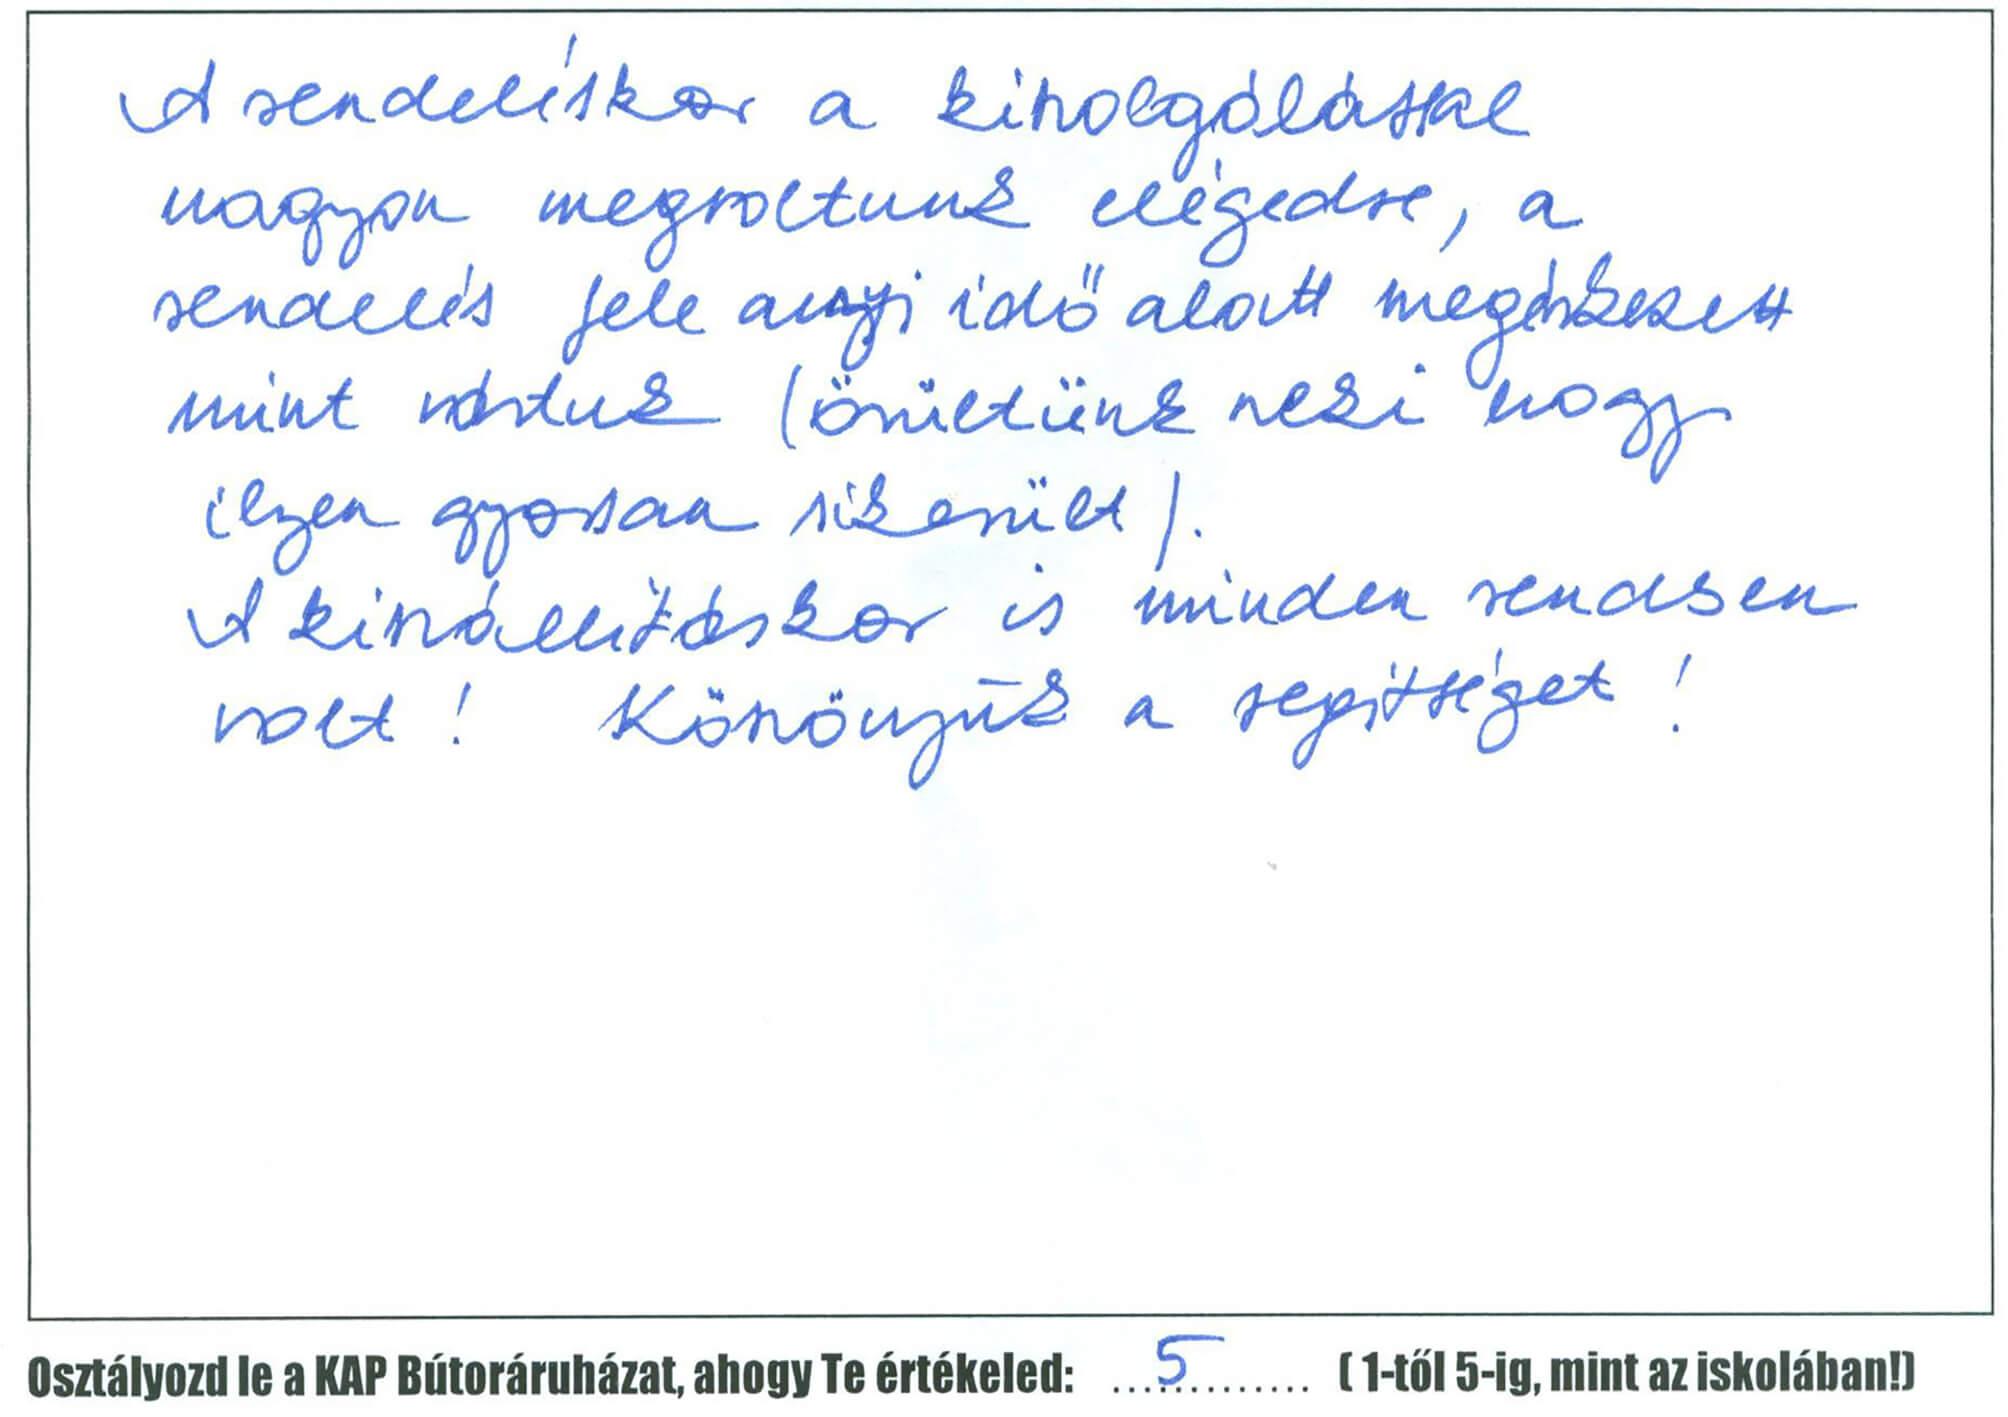 A rendeléskor a kiszolgálással
nagyon megvoltunk elégedve, a
rendelés fele annyi idő alatt megérkezett
mint vártuk (örültünk neki hogy
ilyen gyorsan sikerült).
A kiszállításkor is minden rendben
volt! Köszönjük a segítséget!
Osztályozd le a KAP Bútoráruházat, ahogy Te értékeled: ....5.......... ( 1-től 5-ig, mint az iskolában!)